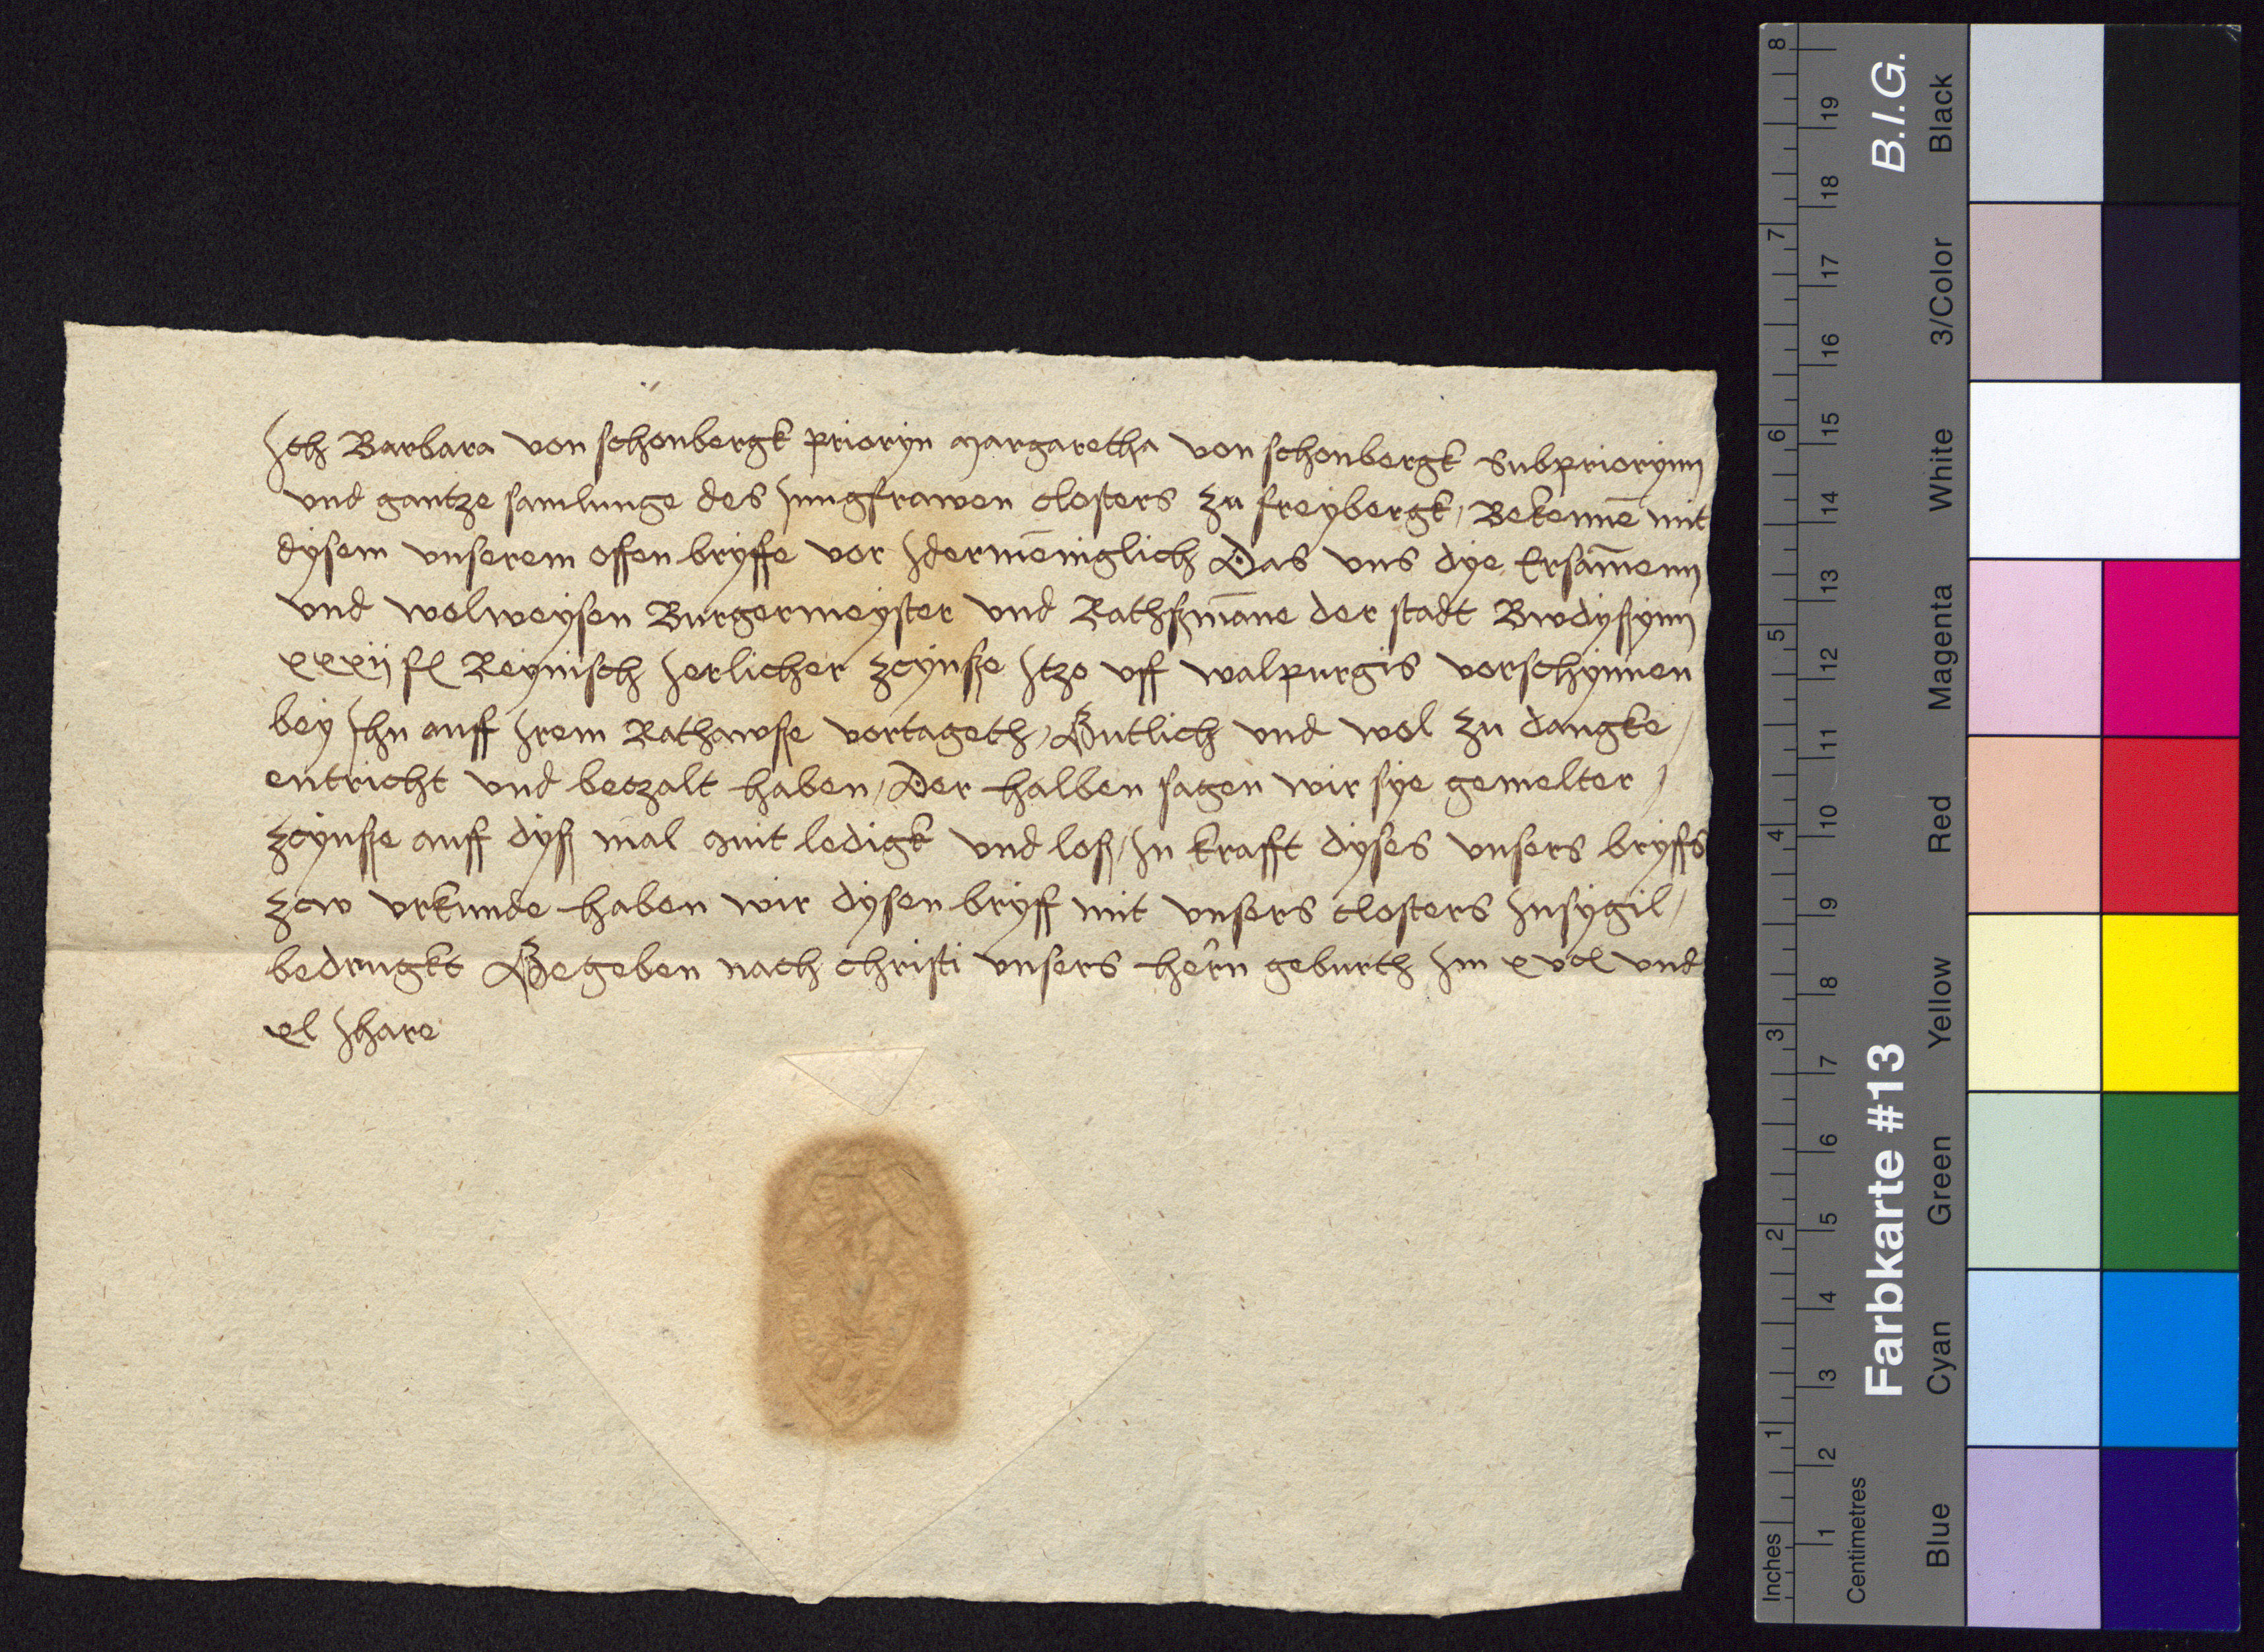 Ich Barbara von schonbergk prioryn margaretha von schonbergk Subpriorynn
vnd gantze samlunge des Jungfrawen closters zu freybergk / Bekennē mit
dysem vnserem offen bryffe vor Idermēniglich Das vns dye Ersam̄enn
vnd wolweysen Burgermeyster vnd Rathßmāne der stadt Bwdyßynn
xxxij fl Reynisch Jerlicher zcynße Itzo vff walpurgis vorschynnen
bey Ihn auff Irem Rathawße vortageth / Gutlich vnd wol zu dangke /
entricht vnd beczalt haben / Der halben sagen wir sye gemelter /
zcynße auff dyß mal quit ledigk vnd loß / In krafft dyses vnsers bryffs
zcw vrkunde haben wir dysen bryff mit vnsers closters Insygil /
bedrugkt Gegeben nach christi vnsers hern geburth Im xvc vnd
xl Ihare
8
7
6
5
4
3
2
1
Inches
19
18
17
16
15
14
13
12
11
10
9
8
7
6
5
4
3
2
1
Centimetres
B.I.G.
Farbkarte #13
Black
3/Color
White
Magenta
Red
Yellow
Green
Cyan
Blue